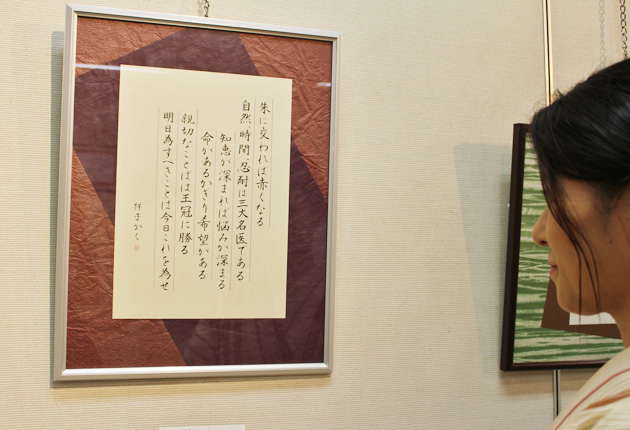 朱に交われば赤くなる
自然、時間、忍耐は三大名医である
知恵が深まれば悩みが深まる
命があるかぎり希望がある
親切なことばは王冠に勝る
明日為すべきことは今日これを為せ
祥子かく